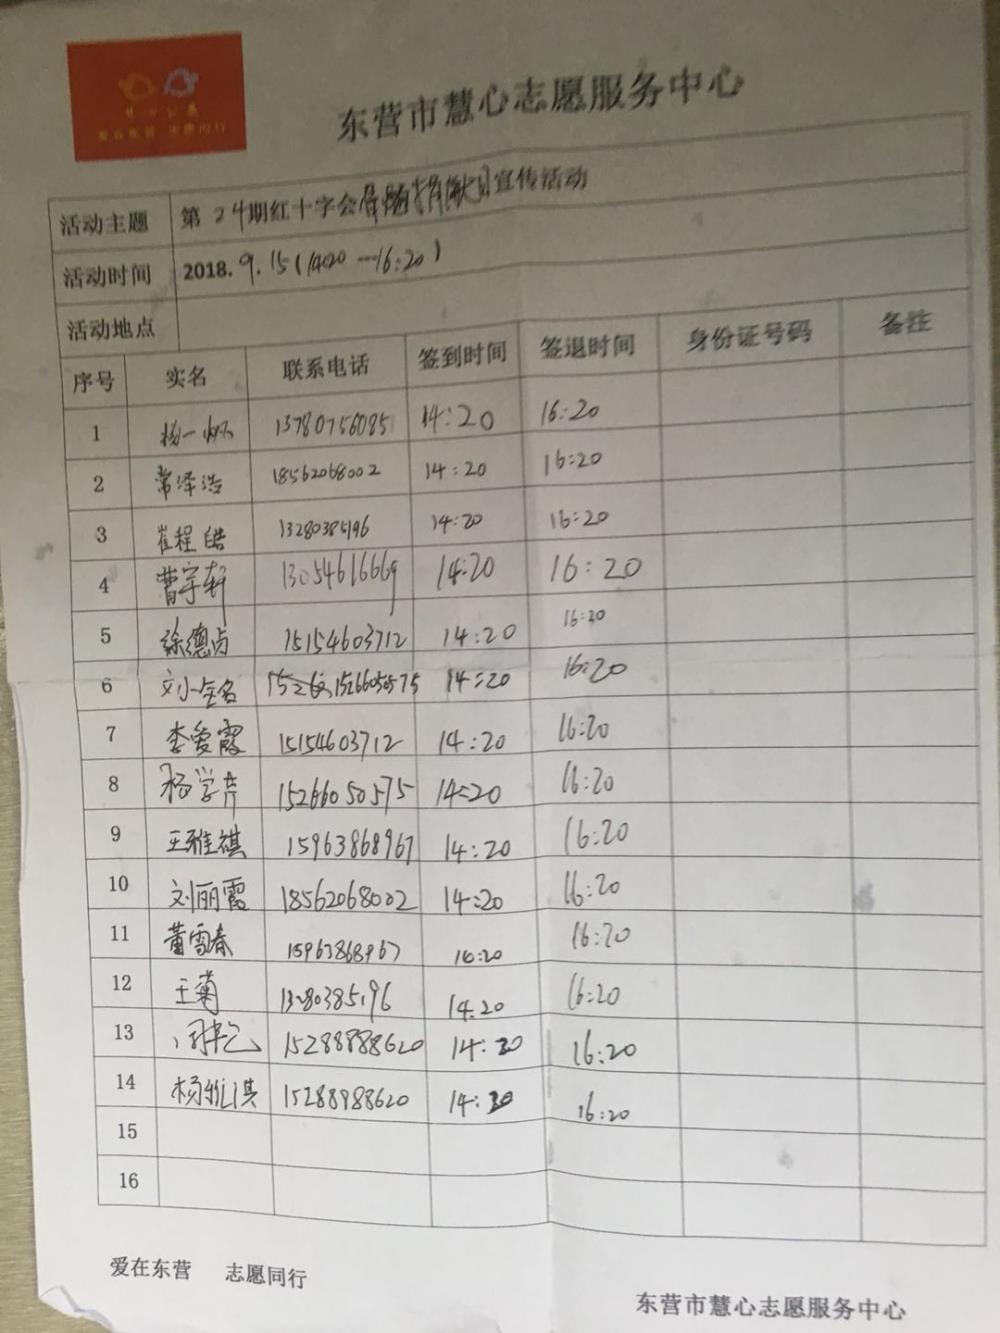 慧心公益
爱在东营 志愿同行
东营市慧心志愿服务中心
活动主题 第24期红十字会骨髓捐献日宣传活动
活动时间 2018.9.15(14:20---16:20)
活动地点
序号 实名 联系电话 签到时间 签退时间 身份证号码 备注
1 杨一 13780756085 14:20 16:20
2 常泽浩 18562068002 14:20 16:20
3 崔程皓 13280385196 14:20 16:20
4 曹宇轩 13054616669 14:20 16:20
5 徐德贞 15154603712 14:20 16:20
6 刘金名 15266050575 14:20 16:20
7 李爱霞 15154603712 14:20 16:20
8 杨学芹 15266050575 14:20 16:20
9 王雅祺 15963868967 14:20 16:20
10 刘丽霞 18562068002 14:20 16:20
11 董雪春 15963868967 14:20 16:20
12 王菊 13280385196 14.20 16:20
13 15288988620 14:20 16:20
14 杨 淇 15288988620 14:20 16:20
15
16
爱在东营 志愿同行
东营市慧心志愿服务中心